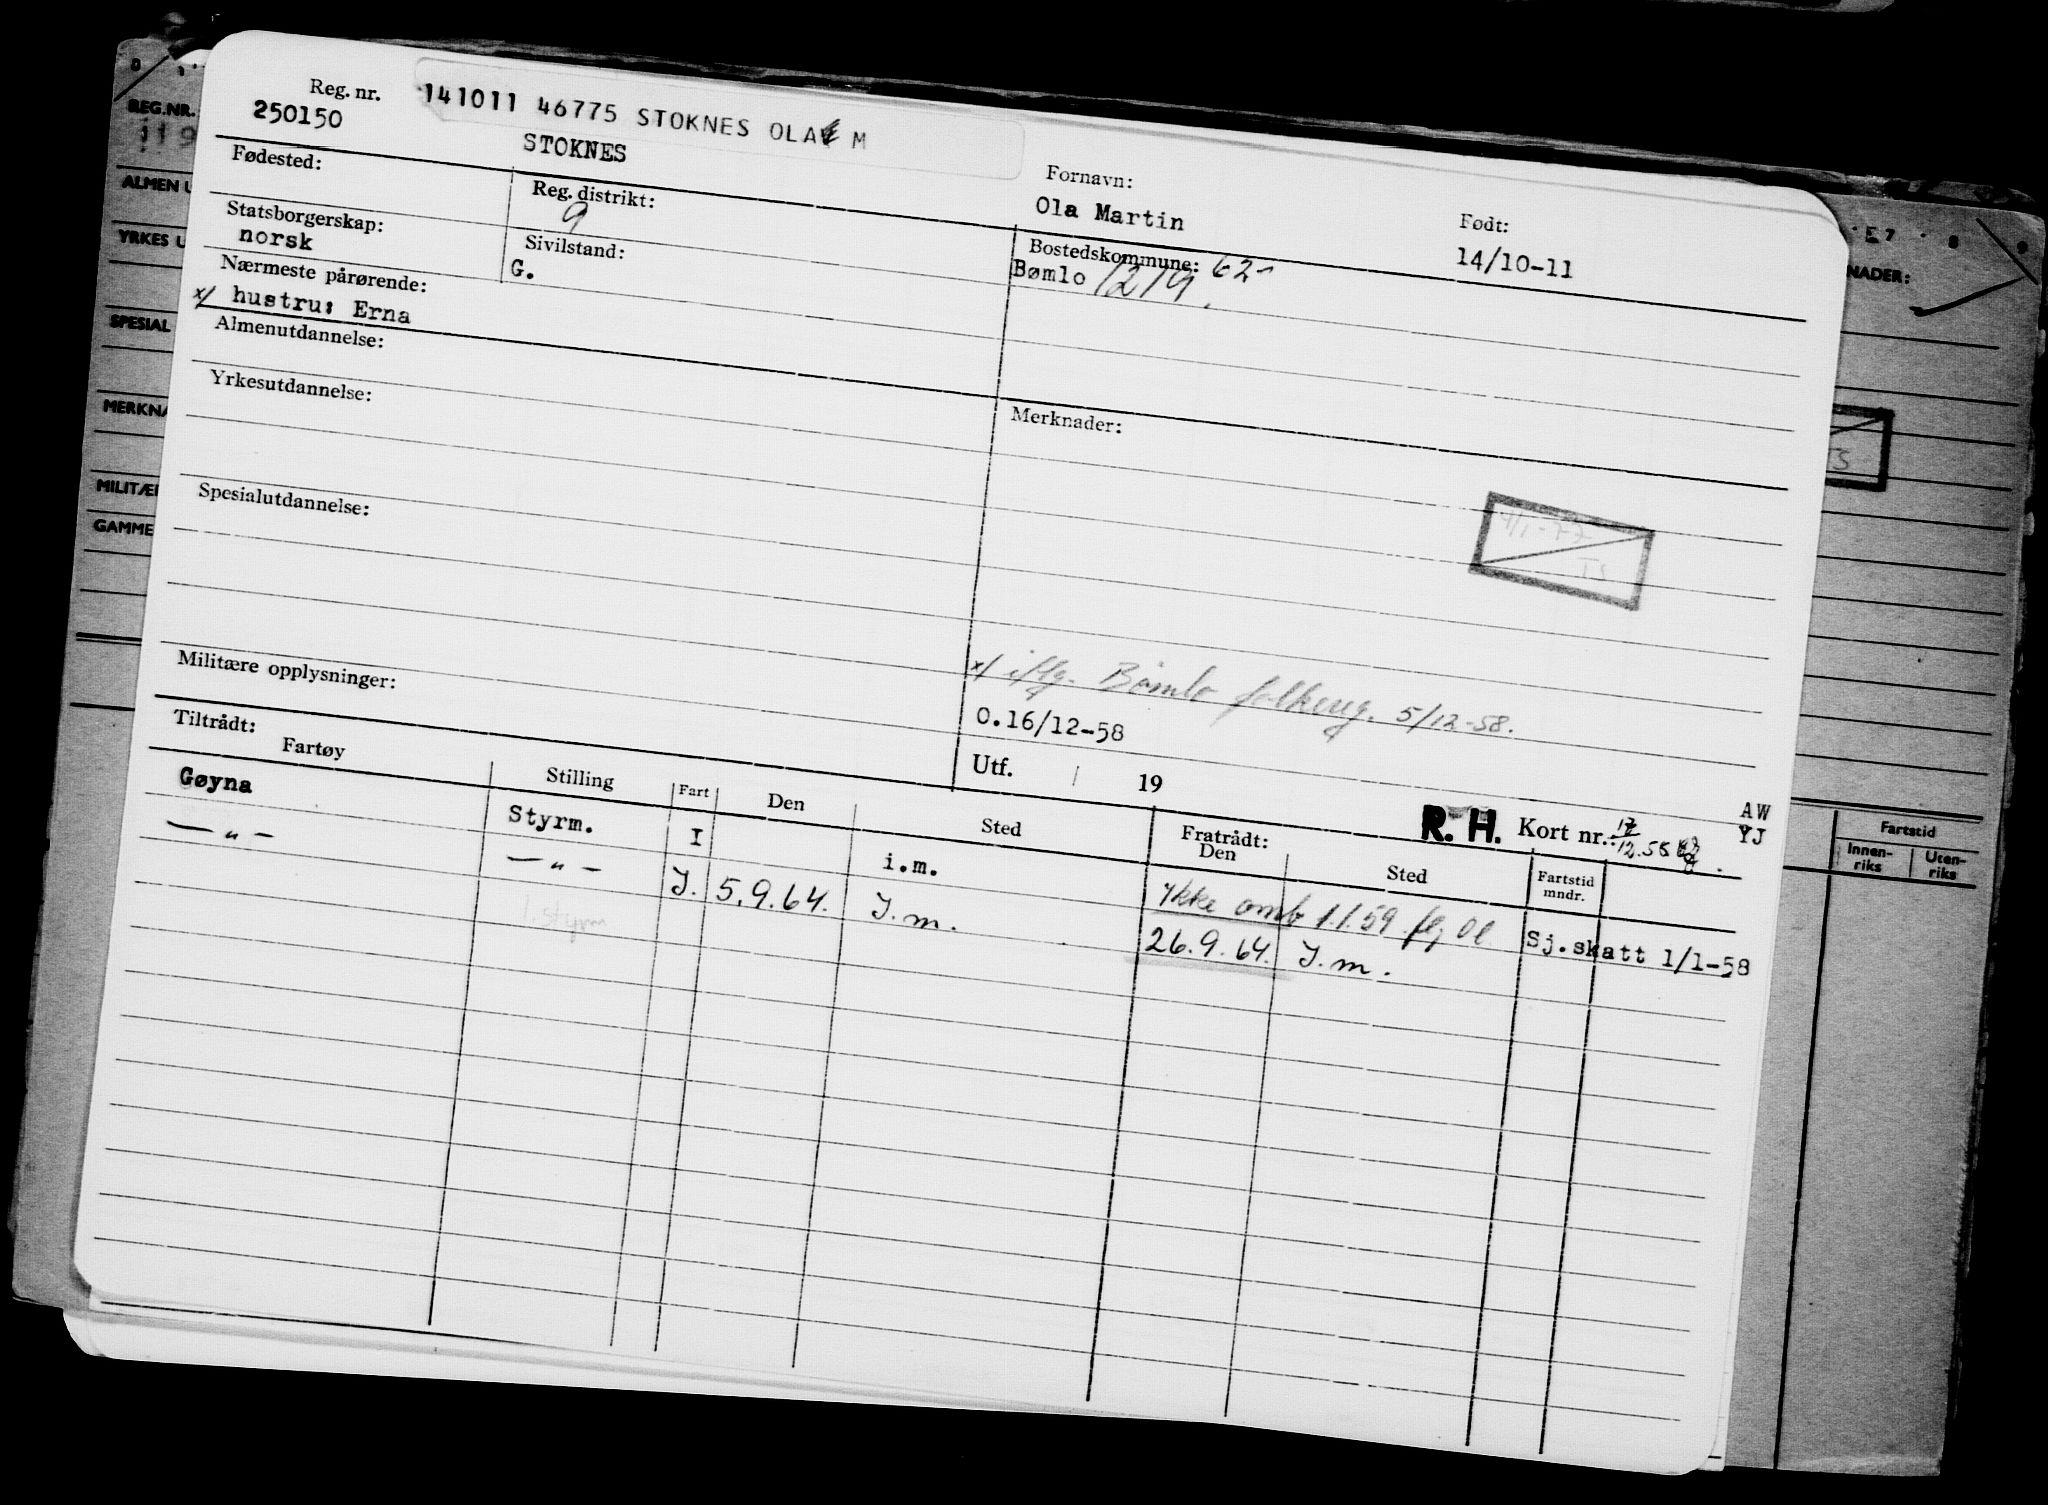 Reg. nr.
250150
141011 46775 STOKNES OLA M
STOKNES
Fornavn:
Ola Martin
Født:
14/10-11
Fødested:
Reg. distrikt:
9
Bostedskommune: 62
Bømlo 1219.
Statsborgerskap:
norsk
Sivilstand:
G.
Nærmeste pårørende:
x/ hustru: Erna
Almenutdannelse:
Yrkesutdannelse:
Merknader:
Spesialutdannelse:
TS
x/ iflg. Bømlo folkereg. 5/12-58.
Militære opplysninger:
0.16/12-58
Utf. / 19
AW
YJ
R. H. Kort nr.:
Tiltrådt:
Fartøy Stilling Fart Den Sted Fratrådt: Den Sted Fartstid mndr.
Gøyna Styrm. I i.m. Ikke omb 1.1.59 flg Ol Sj.skatt 1/1-58
— " — — " — I. 5.9.64. I.m. 26.9.64. I.m.
1. styrm
REG.NR.
119
ALMEN U
YRKES U
SPESIAL
MERKNA
MILITÆR
GAMME
7 8 9
NADER:
TS
Fartstid
Innen-
riks
Uten-
riks